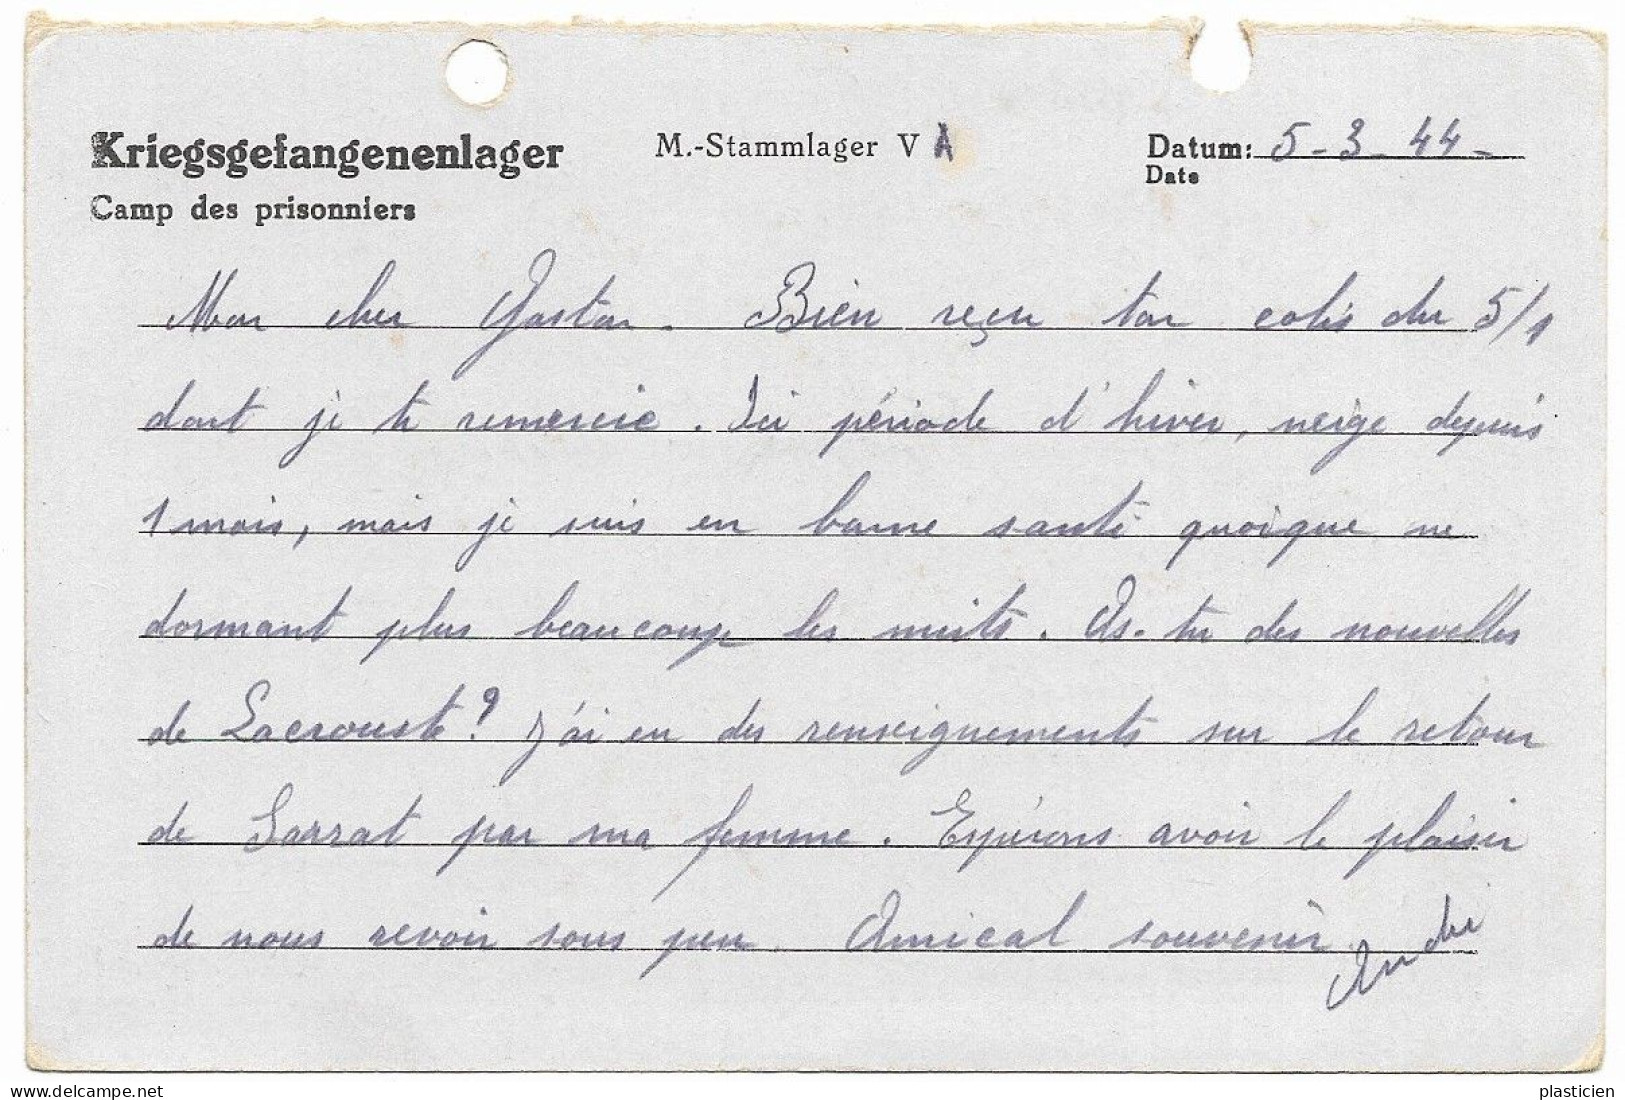 Kriegsgefangenenlager M.-Stammlager V A Datum: 5-3-44-
Camp des prisonniers Date
Mon cher Gaston. Bien reçu ton colis du 5/1
dont je te remercie. Ici période d'hiver, neige depuis
1 mois, mais je suis en bonne santé quoique ne
dormant plus beaucoup les nuits. As-tu des nouvelles
de Lacrouste? J'ai eu des renseignements sur le retour
de Sarrat par ma femme. Espérons avoir le plaisir
de nous revoir sous peu. Amical souvenir.
André
delcampe.net
plasticien